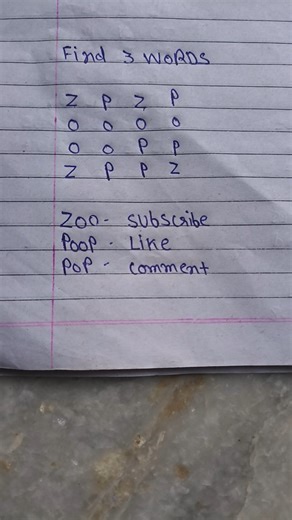 Find 3 WORDS
Z P Z P
O O O O
O O P P
Z P P Z
ZOO - Subscribe
POOP - Like
POP - Comment